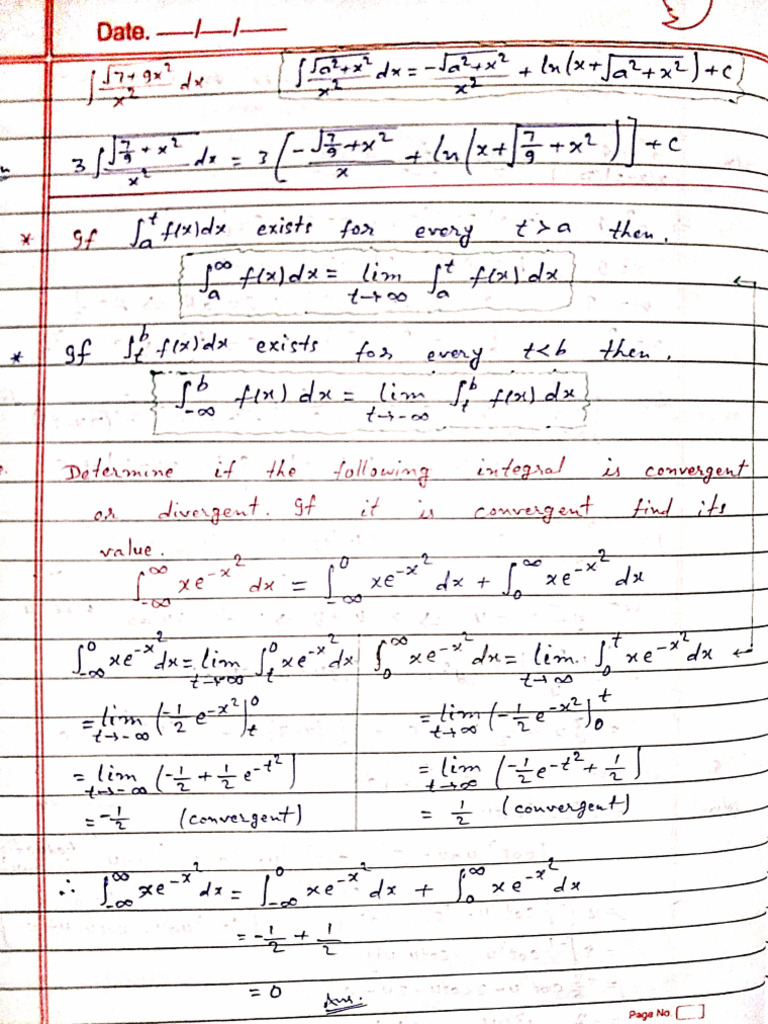 Date. —/—/—
∫ √7+9x² / x² dx   ∫ √a²+x² / x² dx = -√a²+x² / x² + ln(x+√a²+x²)+c
3∫ √7/9+x² / x² dx = 3[-√7/9+x² / x + ln(x+√7/9+x²)]+c
* If ∫ₐᵗ f(x)dx exists for every t>a then,
∫ₐ^∞ f(x)dx = lim t→∞ ∫ₐᵗ f(x)dx
* If ∫ₜᵇ f(x)dx exists for every t<b then,
∫₋∞^b f(x) dx = lim t→-∞ ∫ₜᵇ f(x)dx
Determine if the following integral is convergent
or divergent. If it is convergent find its
value.
∫₋∞^∞ xe^-x² dx = ∫₋∞^0 xe^-x² dx + ∫₀^∞ xe^-x² dx
∫₋∞^0 xe^-x² dx = lim t→-∞ ∫ₜ^0 xe^-x² dx   ∫₀^∞ xe^-x² dx = lim t→∞ ∫₀^t xe^-x² dx
= lim t→-∞ (-1/2 e^-x²|ₜ^0   = lim t→∞ (-1/2 e^-x²|₀^t
= lim t→-∞ (-1/2 + 1/2 e^-t²]   = lim t→∞ (-1/2 e^-t² + 1/2]
= -1/2 (convergent)   = 1/2 (convergent)
∴ ∫₋∞^∞ xe^-x² dx = ∫₋∞^0 xe^-x² dx + ∫₀^∞ xe^-x² dx
= -1/2 + 1/2
= 0 Ans.
Page No.